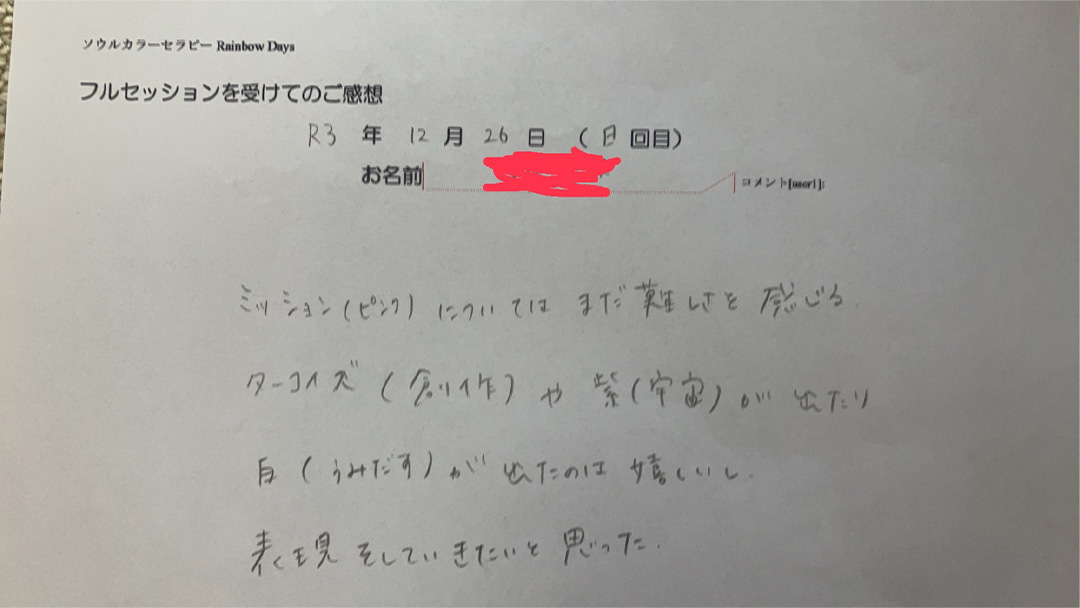 ソウルカラーセラピー Rainbow Days
フルセッションを受けてのご感想
R3 年 12 月 26 日 (日 回目)
お名前
コメント[user1]:
ミッション(ピンク)についてはまだ難しさを感じる.
ターコイズ(創作)や紫(宇宙)が出たり
白(うみだす)が出たのは嬉しいし.
表現をしていきたいと思った.